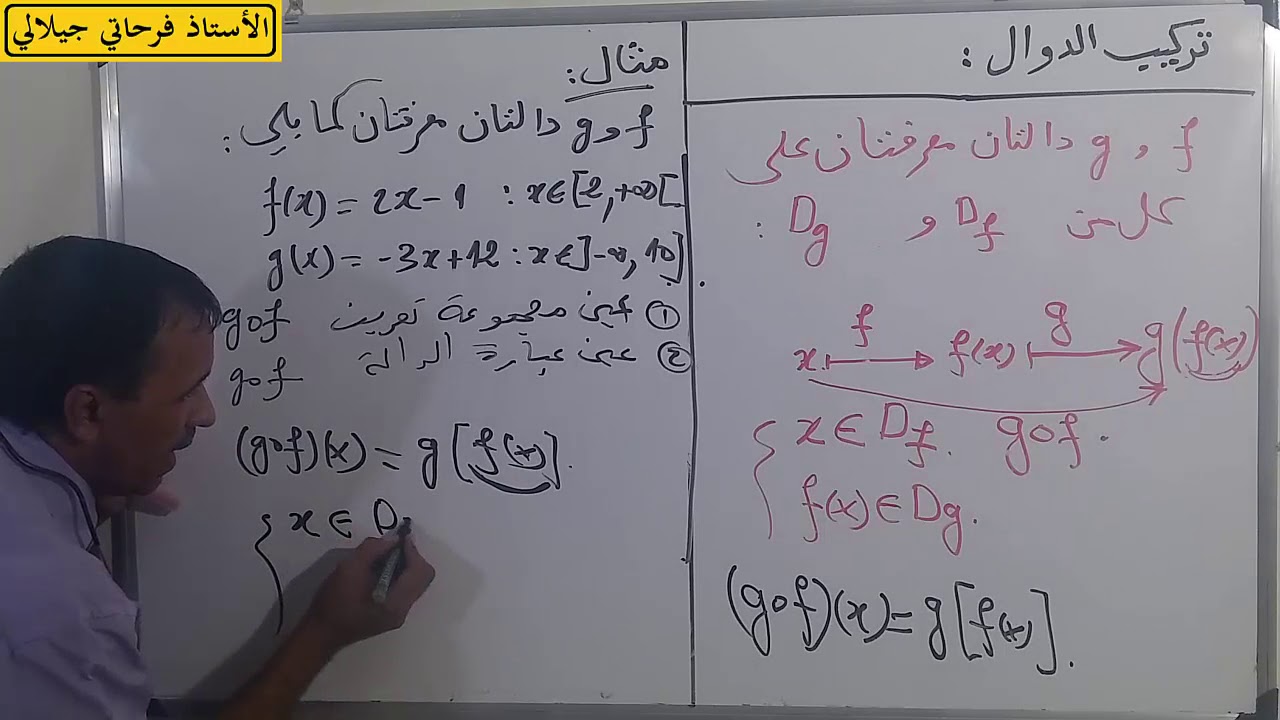 الأستاذ فرحاتي جيلالي
تركيب الدوال :
f و g دالتان معرفتان على
كل من Df و Dg :
x ⟼ f(x) ⟼ g(f(x))
f g
{ x ∈ Df. gof.
f(x) ∈ Dg.
(gof)(x) = g[f(x)].
مثال :
f و g دالتان معرفتان كما يلي :
f(x) = 2x - 1 : x ∈ [2, +∞[
g(x) = -3x + 12 : x ∈ ]-∞, 10]
① عين مجموعة تعريف gof
② عين عبارة الدالة gof
(gof)(x) = g[f(x)].
{ x ∈ D